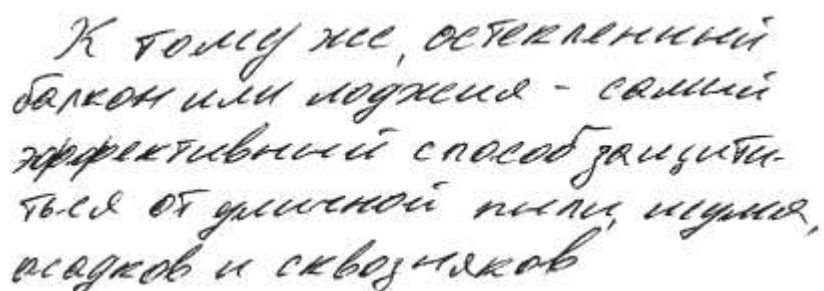 К тому же, остекленный
балкон или лоджия - самый
эффективный способ защити-
ться от уличной пыли, шума,
осадков и сквозняков